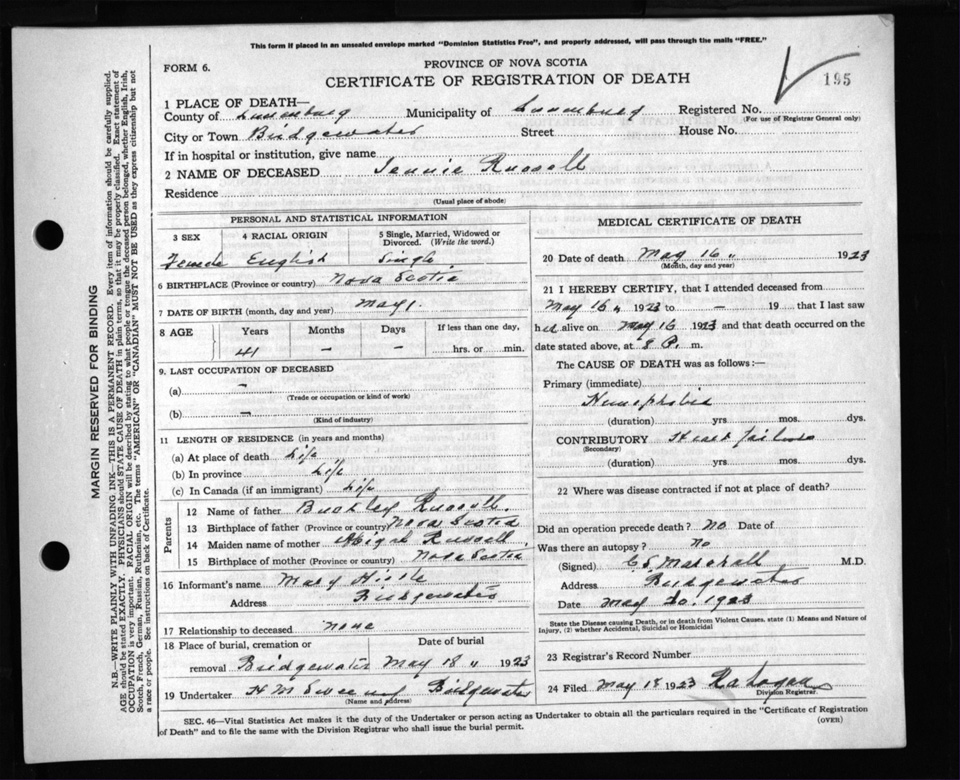 This form if placed in an unsealed envelope marked "Dominion Statistics Free", and properly addressed, will pass through the mails "FREE."
FORM 6.
PROVINCE OF NOVA SCOTIA
CERTIFICATE OF REGISTRATION OF DEATH
195
1 PLACE OF DEATH—
County of Lunenburg Municipality of Lunenburg Registered No.
(For use of Registrar General only)
City or Town Bridgewater Street House No.
If in hospital or institution, give name
2 NAME OF DECEASED Jennie Russell
Residence
(Usual place of abode)
PERSONAL AND STATISTICAL INFORMATION
3 SEX 4 RACIAL ORIGIN 5 Single, Married, Widowed or Divorced. (Write the word.)
Female English Single
6 BIRTHPLACE (Province or country) Nova Scotia
7 DATE OF BIRTH (month, day and year) May 1
8 AGE Years Months Days If less than one day,
41 – – hrs. or min.
9. LAST OCCUPATION OF DECEASED
(a) –
(Trade or occupation or kind of work)
(b) –
(Kind of industry)
11 LENGTH OF RESIDENCE (in years and months)
(a) At place of death Life
(b) In province Life
(c) In Canada (if an immigrant) Life
Parents
12 Name of father Russell
13 Birthplace of father (Province or country) Nova Scotia
14 Maiden name of mother Russell
15 Birthplace of mother (Province or country) Nova Scotia
16 Informant's name Mary
Address Bridgewater
17 Relationship to deceased none
18 Place of burial, cremation or Date of burial
removal Bridgewater May 18 " 1923
19 Undertaker H M Bridgewater
(Name and address)
MEDICAL CERTIFICATE OF DEATH
20 Date of death May 16 " 1923
(Month, day and year)
21 I HEREBY CERTIFY, that I attended deceased from
May 16 " 1923 to – 19 that I last saw
her alive on May 16 1923 and that death occurred on the
date stated above, at 8 P. m.
The CAUSE OF DEATH was as follows:—
Primary (immediate)
(duration) yrs. mos. dys.
CONTRIBUTORY Heart failure
(Secondary)
(duration) yrs. mos. dys.
22 Where was disease contracted if not at place of death?
Did an operation precede death? No Date of
Was there an autopsy? No
(Signed) Marshall M.D.
Address Bridgewater
Date May 20, 1923
State the Disease causing Death, or in death from Violent Causes, state (1) Means and Nature of
Injury, (2) whether Accidental, Suicidal or Homicidal
23 Registrar's Record Number
24 Filed May 18 1923
Division Registrar.
SEC. 46—Vital Statistics Act makes it the duty of the Undertaker or person acting as Undertaker to obtain all the particulars required in the "Certificate of Registration
of Death" and to file the same with the Division Registrar who shall issue the burial permit.
(OVER)
MARGIN RESERVED FOR BINDING
N.B.—WRITE PLAINLY WITH UNFADING INK—THIS IS A PERMANENT RECORD. Every item of information should be carefully supplied.
AGE should be stated EXACTLY. PHYSICIANS should STATE CAUSE OF DEATH in plain terms, so that it may be properly classified. Exact statement of
OCCUPATION is very important. RACIAL ORIGIN will be described by stating to what people or tongue the deceased person belonged, whether English, Irish,
Scotch, French, German, Russian, Ruthenian, etc. The terms "AMERICAN" OR "CANADIAN" MUST NOT BE USED as they express citizenship but not
a race or people. See instructions on back of Certificate.